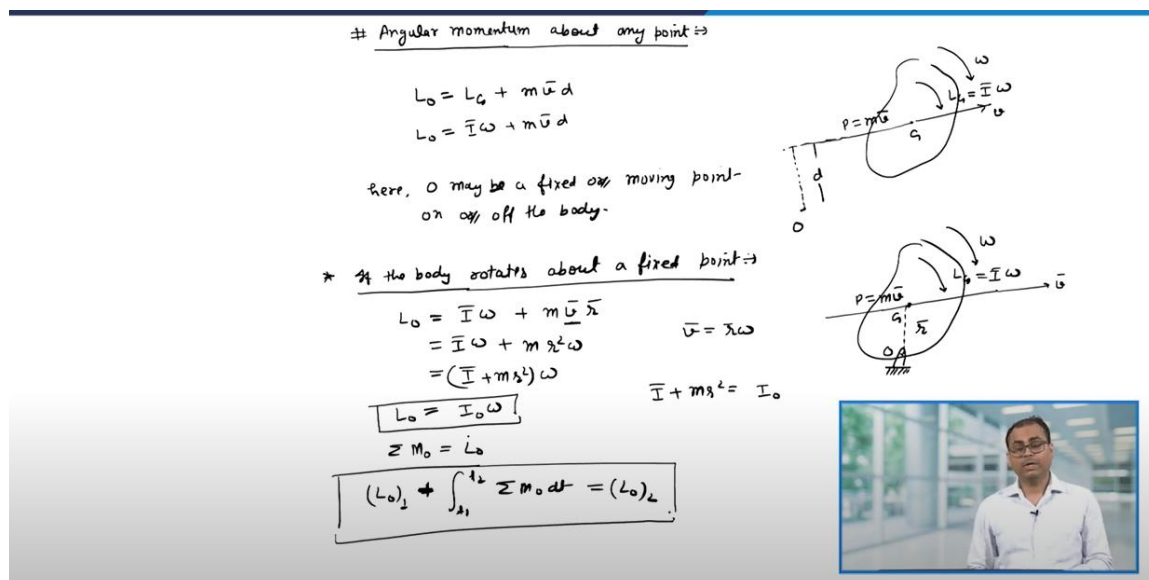 # Angular momentum about any point :→
L₀ = L_G + m v̄ d
L₀ = Ī ω + m v̄ d
here, O may be a fixed or moving point
on or off the body.
* If the body rotates about a fixed point :→
L₀ = Ī ω + m v̄ r̄
= Ī ω + m r² ω
= (Ī + m r²) ω
L₀ = I₀ ω
Σ M₀ = L̇₀
(L₀)₁ + ∫_{t₁}^{t₂} Σ M₀ dt = (L₀)₂
v̄ = r̄ω
Ī + mr² = I₀
ω
L_G = Ī ω
P = m v̄
v
G
d
O
ω
L_G = Ī ω
P = m v̄
v̄
G
r̄
O